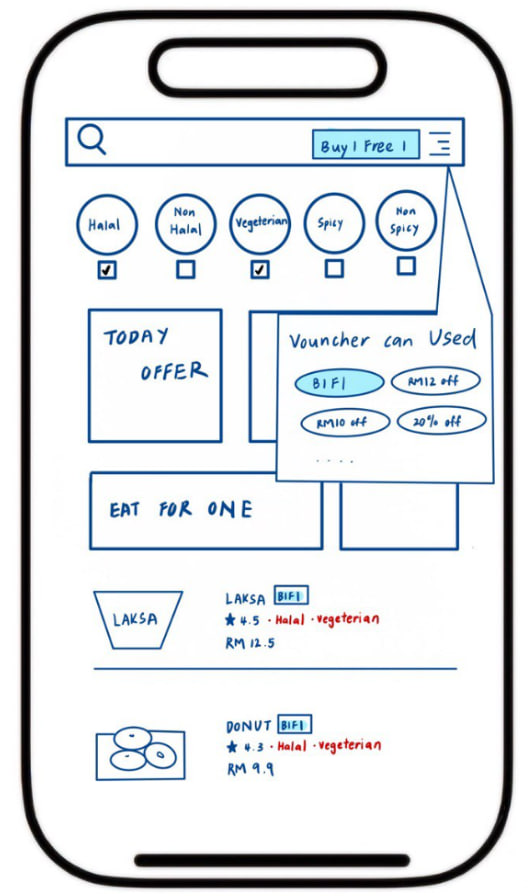 Buy 1 Free 1
Halal
Non
Halal
Vegeterian
Spicy
Non
Spicy
TODAY
OFFER
Vouncher can Used
B1F1
RM12 off
RM10 off
20% off
....
EAT FOR ONE
LAKSA
LAKSA B1F1
★ 4.5 · Halal · vegeterian
RM 12.5
DONUT B1F1
★ 4.3 · Halal · vegeterian
RM 9.9